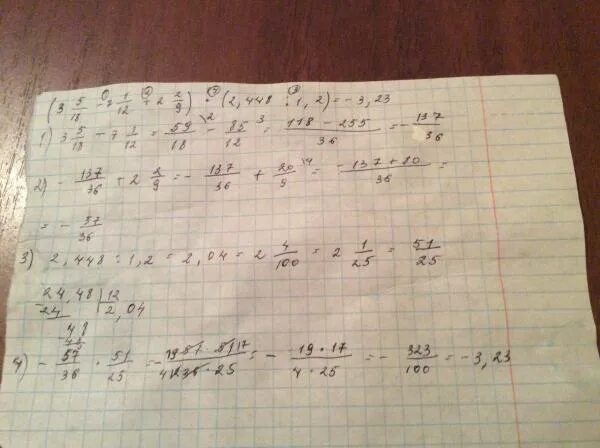 (3 5/18 - 7 1/12 + 2 2/9) · (2,448 : 1,2) = -3,23
1) 3 5/18 - 7 1/12 = 59/18 - 85/12 = 118 - 255/36 = - 137/36
2) - 137/36 + 2 2/9 = - 137/36 + 20/9 = -137 + 80/36 =
= - 57/36
3) 2,448 : 1,2 = 2,04 = 2 4/100 = 2 1/25 = 51/25
24,48 | 12
24 2,04
48
48
4) - 57/36 · 51/25 = - 19 57 · 51 17/4 12 36 · 25 = - 19 · 17/4 · 25 = - 323/100 = -3,23